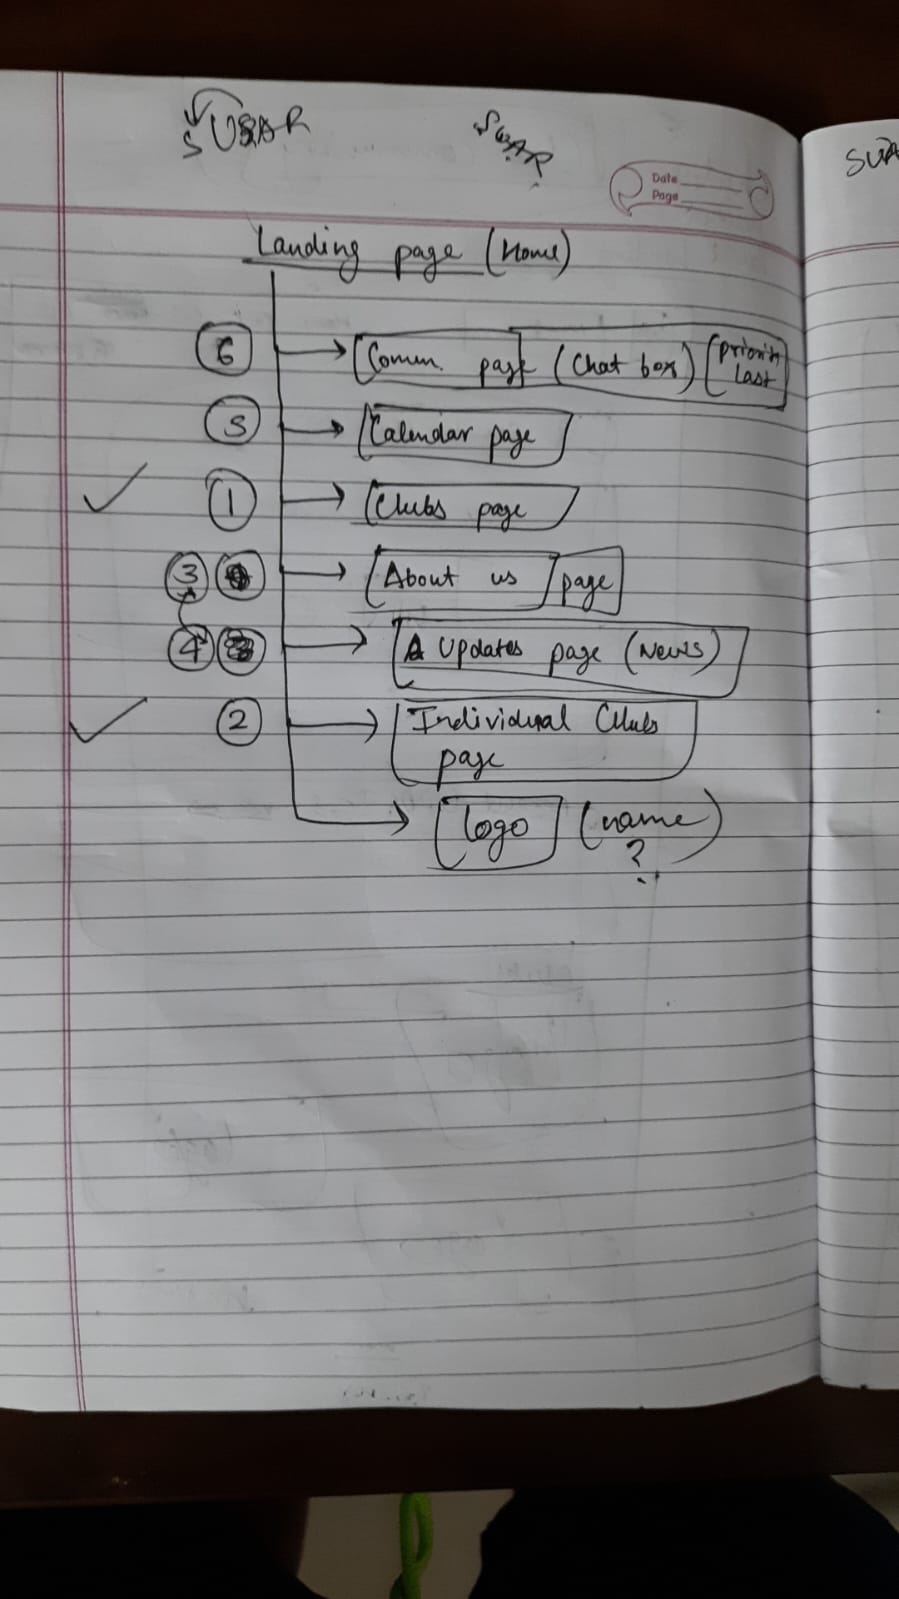 SWAR
SUA
Date
Page
Landing page (Home)
6 Comm. page (Chat box) Priority
Last
5 Calendar page
1 Clubs page
3 About us page
4 Updates page (News)
2 Individual Clubs
page
logo (name)
?